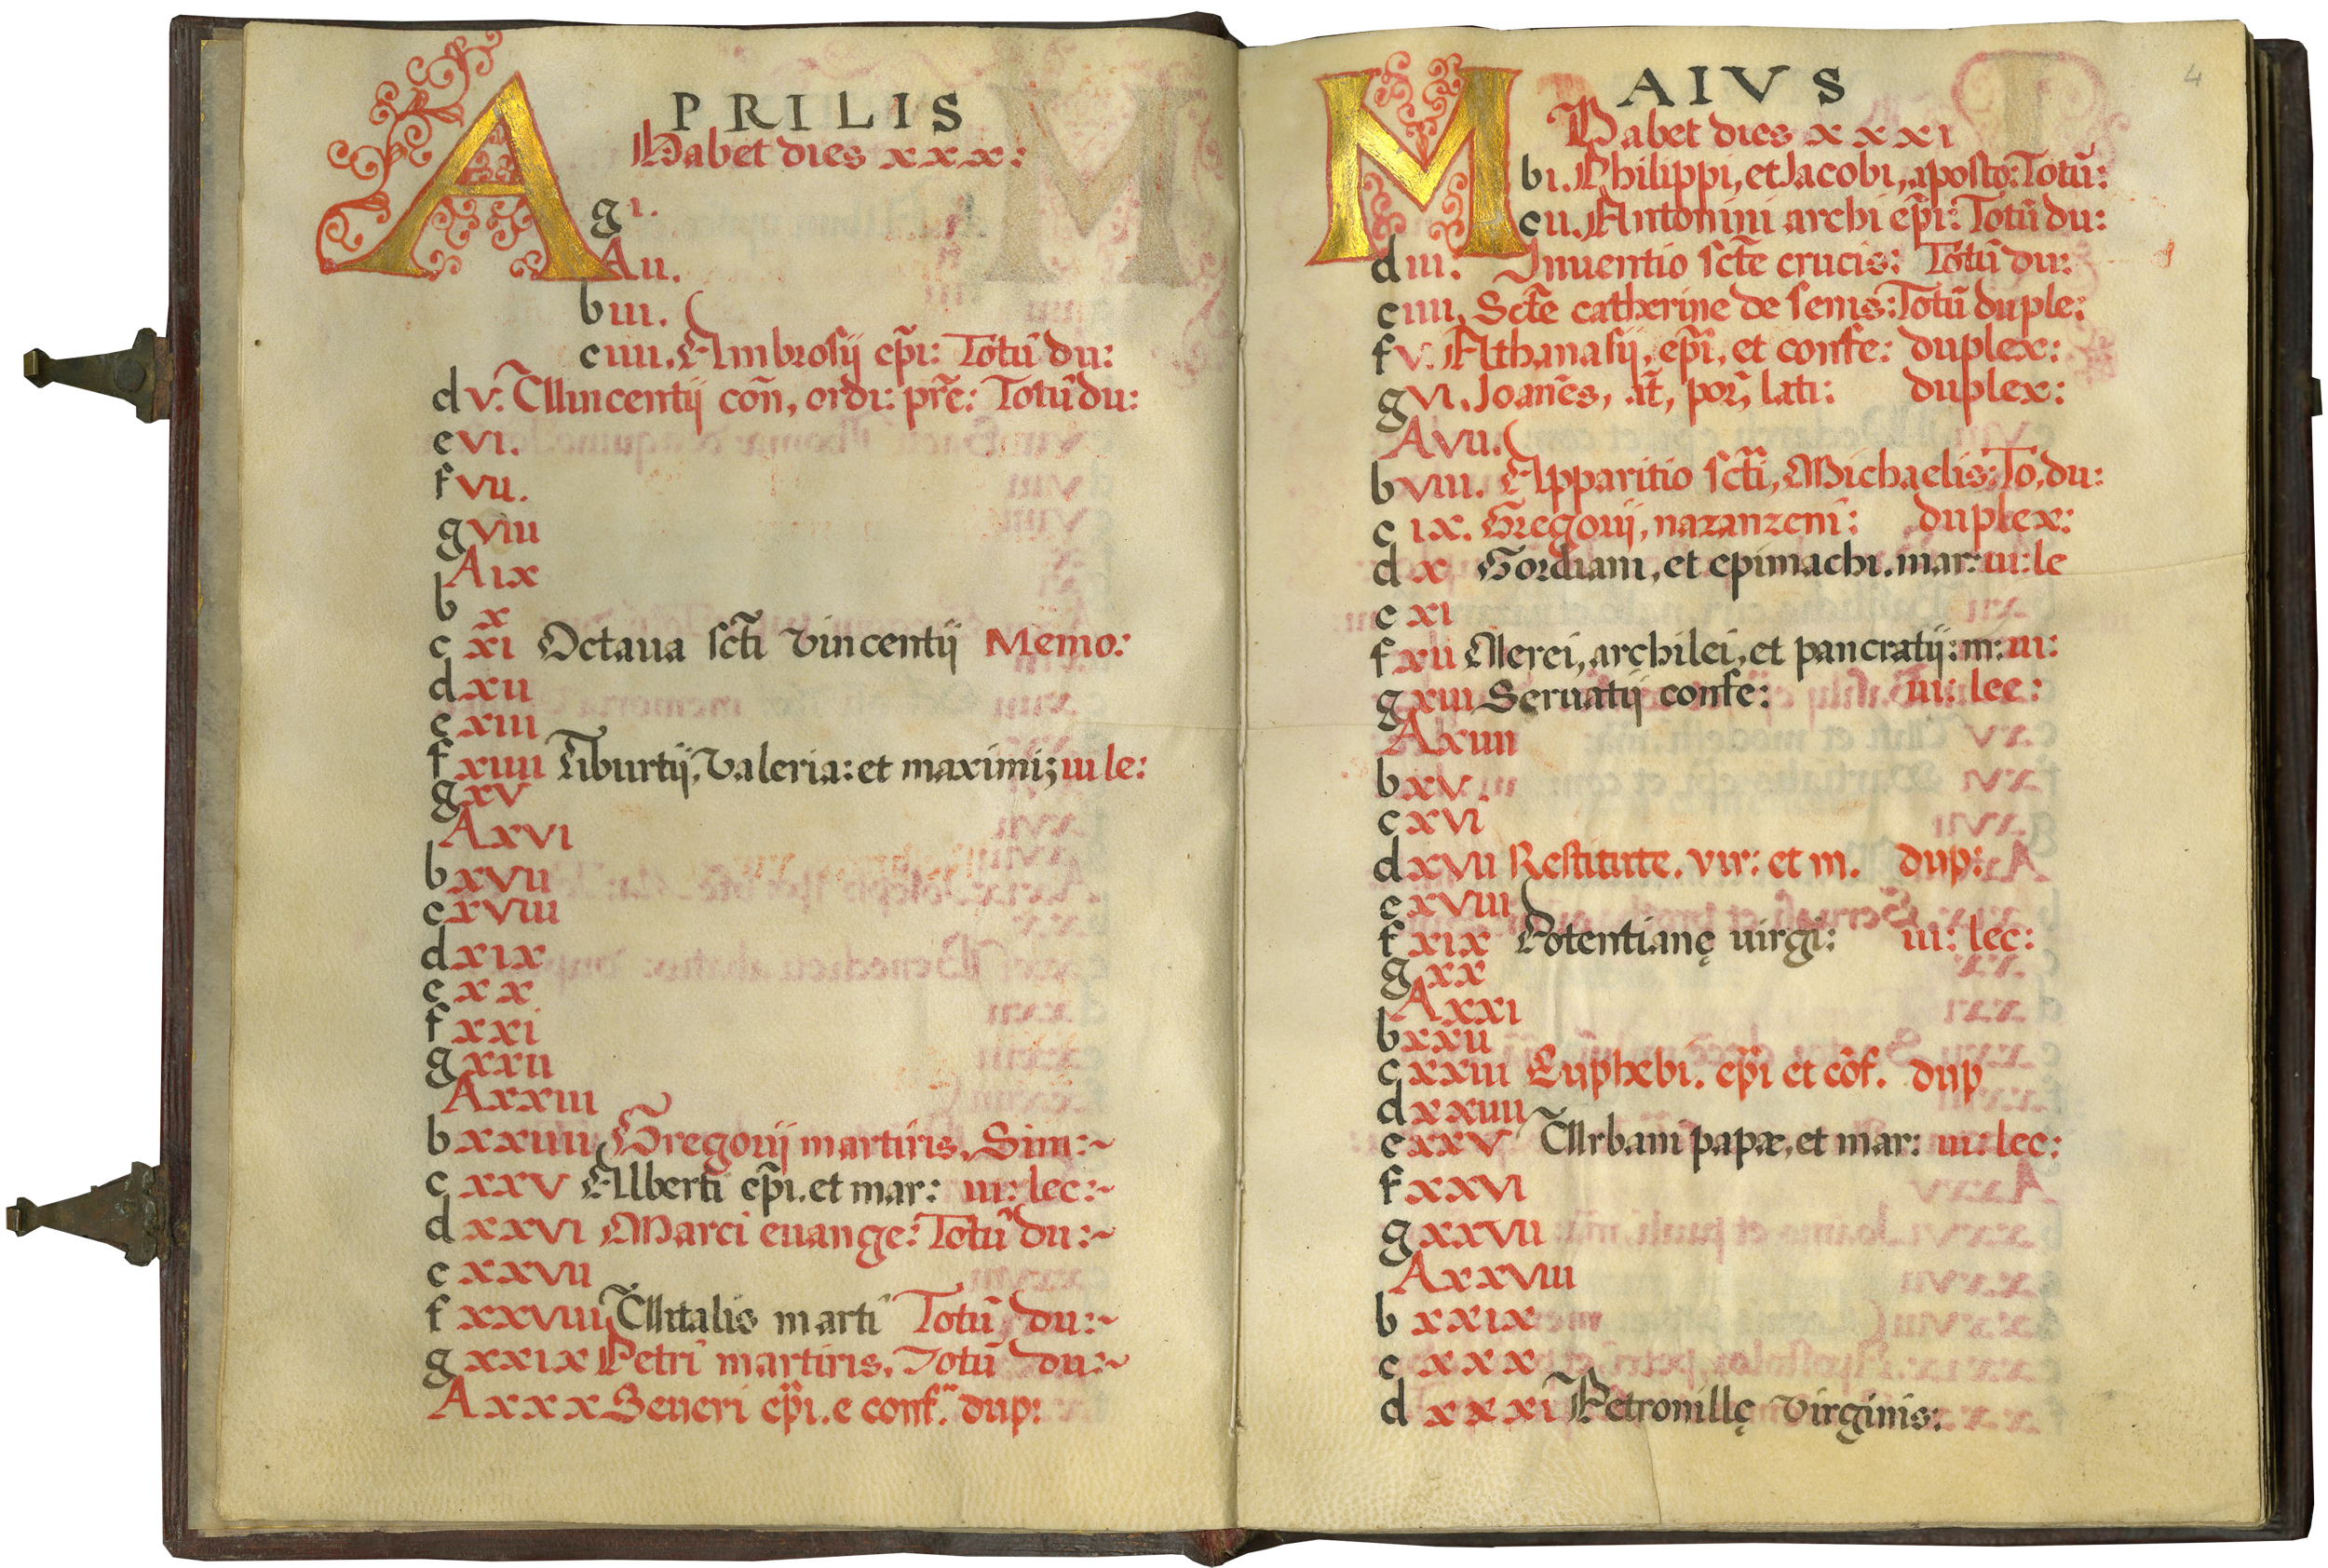 APRILIS
Habet dies xxx:
g i.
A ii.
b iii.
c iiii. Ambrosij ep̃i: Totũ du:
d v. Vincentij coñ, ordi: pr̃e: Totũ du:
e vi.
f vii.
g viii
A ix
b x
c xi Octaua sct̃i vincentij Memo:
d xii
e xiii
f xiiii Tiburtij, valeria: et maximi; iii le:
g xv
A xvi
b xvii
c xviii
d xix
e xx
f xxi
g xxii
A xxiii
b xxiiii Gregorij martiris, Sim:~
c xxv Alberti ep̃i. et mar: iii: lec:~
d xxvi Marci euange: Totũ du:~
e xxvii
f xxviii Vitalis marti Totũ du:~
g xxix Petri martiris, Totũ du:~
A xxx Seueri ep̃i. e conf. dup:
4
MAIVS
Habet dies xxxi
b i. Philippi, et Jacobi, aposto: Totũ:
c ii. Antonini archi ep̃i: Totũ du:
d iii. Inuentio sct̃e crucis: Totũ du:
e iiii. Sct̃e catherine de senis: Totũ duple:
f v. Athanasij, ep̃i, et confe: duplex:
g vi. Joanẽs, añt, por̃, lati: duplex:
A vii.
b viii. Apparitio sct̃i, Michaelis: To, du:
c ix. Gregorij, nazanzeni: duplex:
d x Gordiani, et epimachi. mar: iii: le
e xi
f xii Nerei, archilei, et pancratij: m: iii:
g xiii Seruatij confe: iii: lec:
A xiiii
b xv
c xvi
d xvii Restitute. vir: et m. dup:
e xviii
f xix Potentianę uirgi: iii: lec:
g xx
A xxi
b xxii
c xxiii Euphebi. ep̃i et cõf. dup
d xxiiii
e xxv Urbani papæ, et mar: iii: lec:
f xxvi
g xxvii
A xxviii
b xxix
c xxx
d xxxi Petronillę virginis: